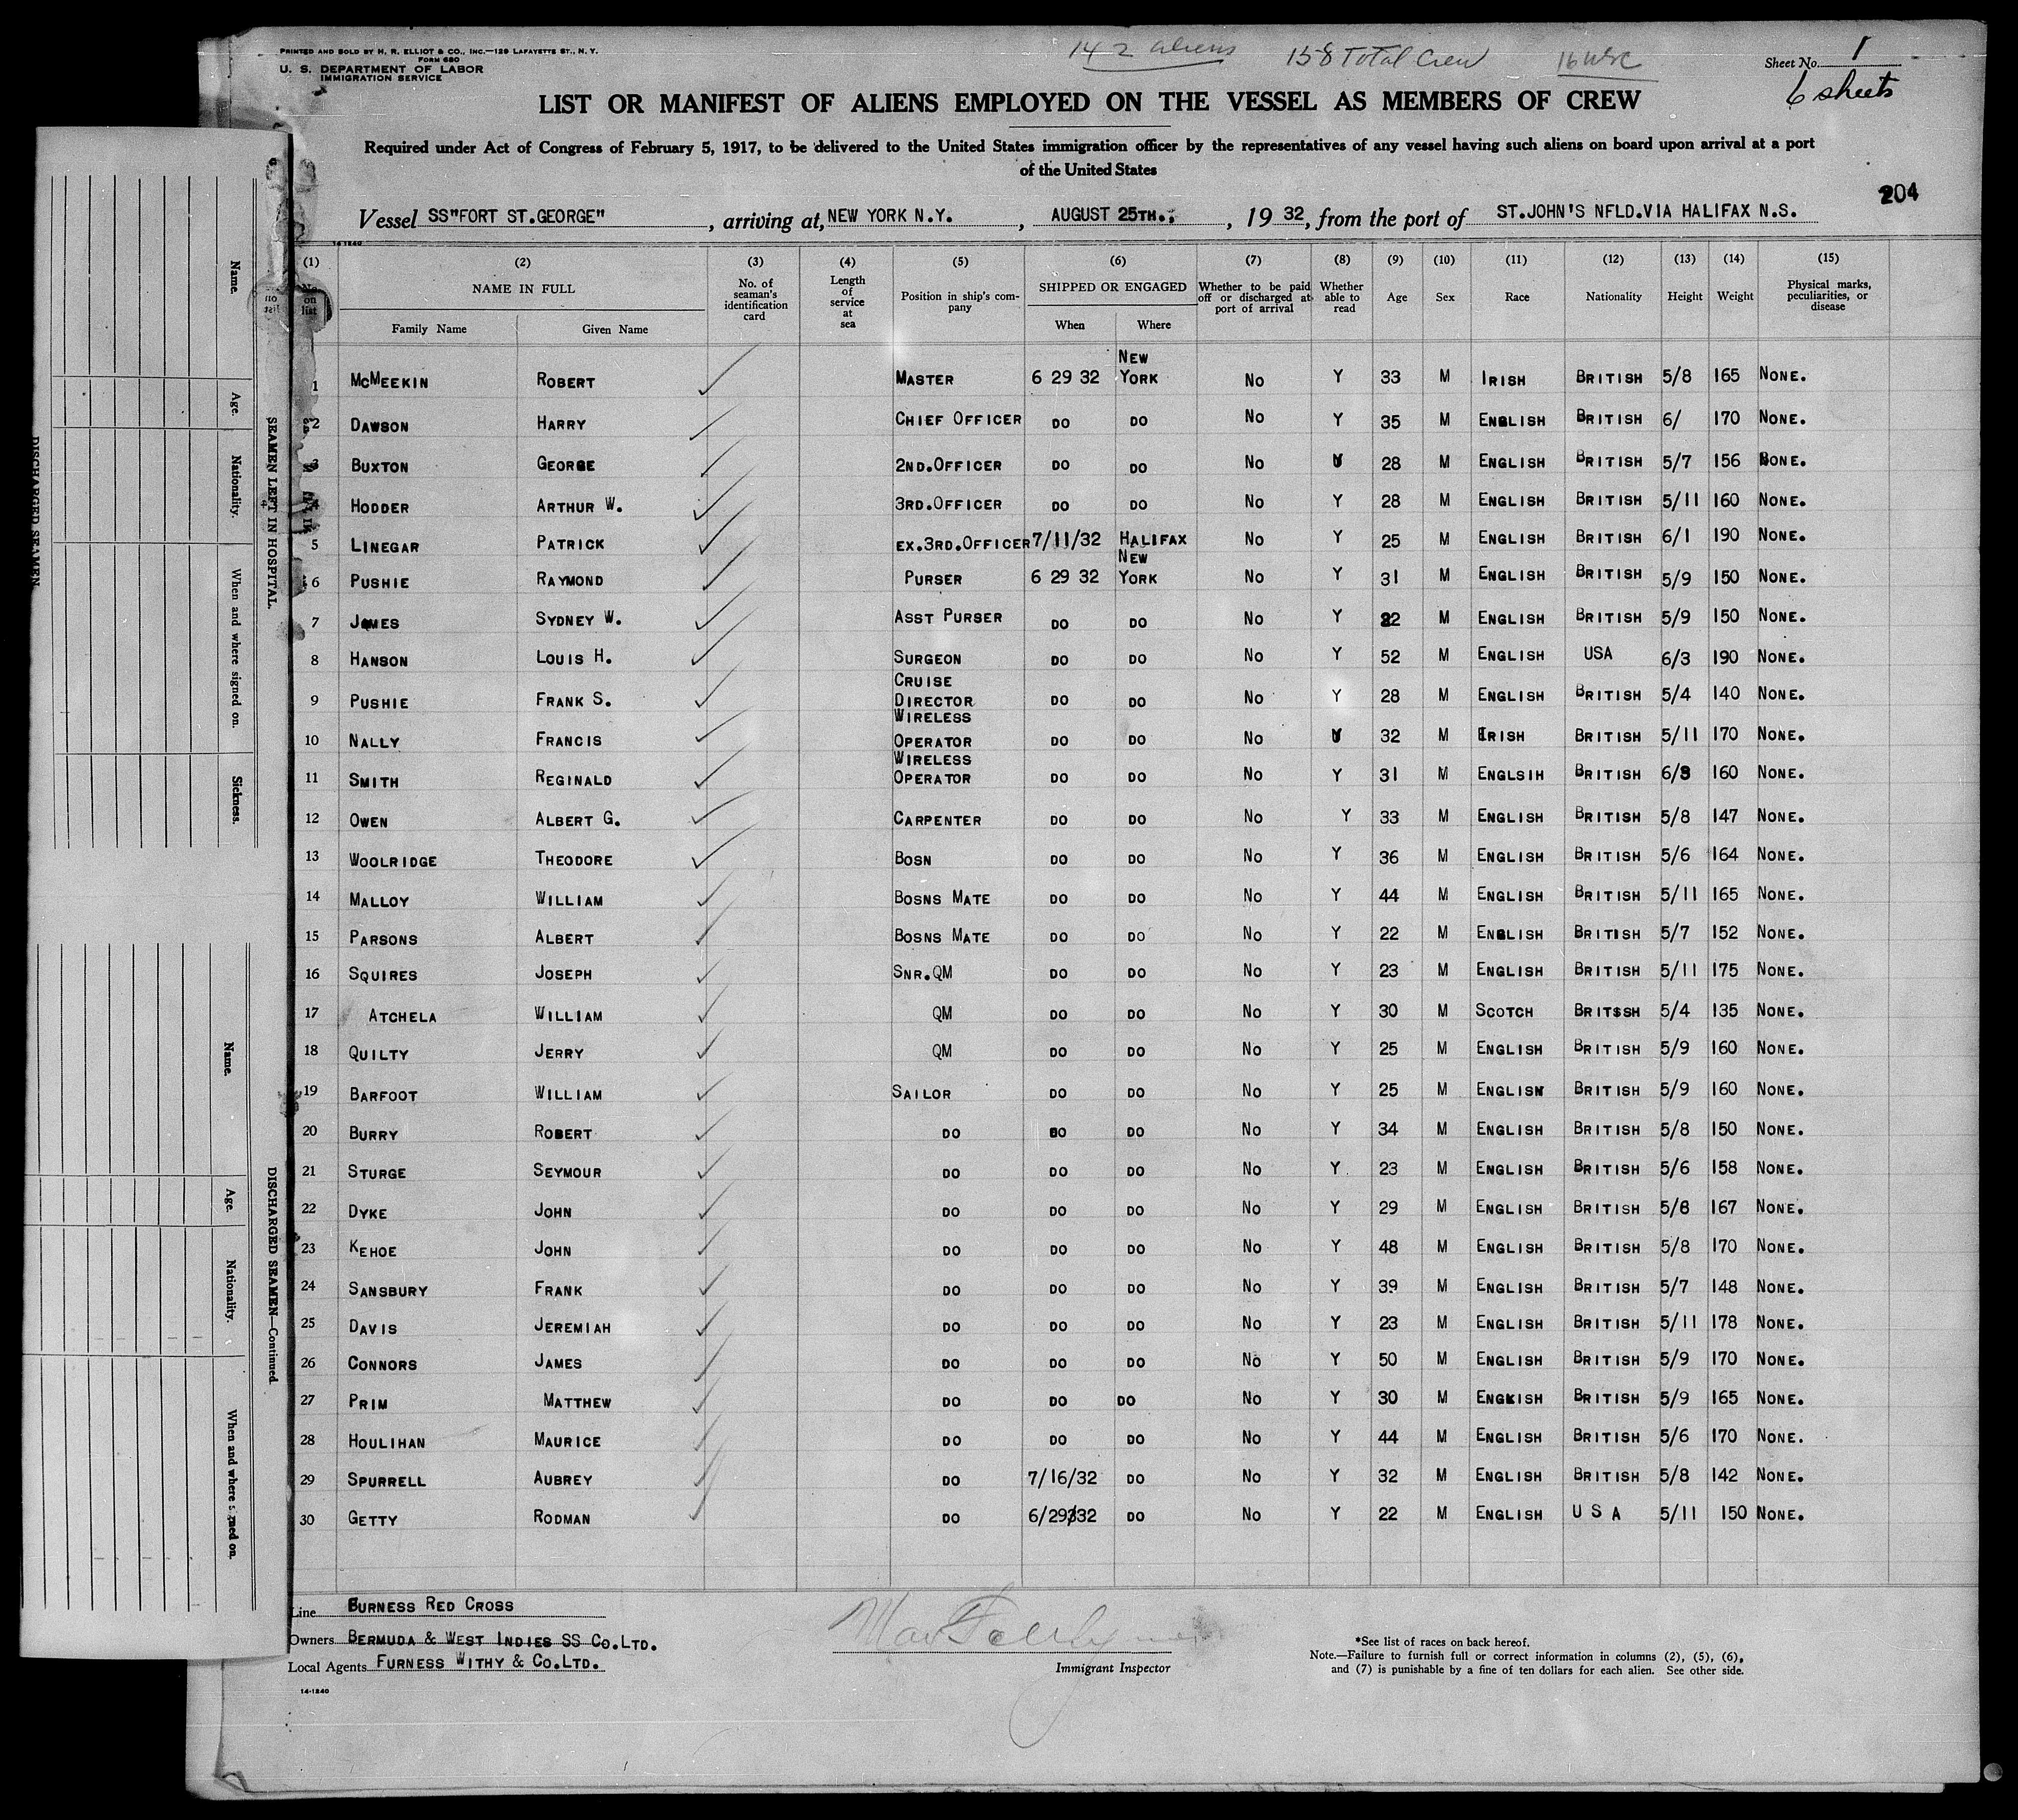 PRINTED AND SOLD BY H. R. ELLIOT & CO., INC.—129 LAFAYETTE ST., N. Y.
FORM 680
U. S. DEPARTMENT OF LABOR
IMMIGRATION SERVICE
14 2 aliens 158 Total Crew
Sheet No. 1
6 sheets
LIST OR MANIFEST OF ALIENS EMPLOYED ON THE VESSEL AS MEMBERS OF CREW
Required under Act of Congress of February 5, 1917, to be delivered to the United States immigration officer by the representatives of any vessel having such aliens on board upon arrival at a port
of the United States
204
Vessel SS"FORT ST.GEORGE", arriving at, NEW YORK N.Y., AUGUST 25TH.;, 19 32, from the port of ST.JOHN'S NFLD.VIA HALIFAX N.S.
14-1240
(1) (2) (3) (4) (5) (6) (7) (8) (9) (10) (11) (12) (13) (14) (15)
No. on list NAME IN FULL Family Name Given Name No. of seaman's identification card Length of service at sea Position in ship's company SHIPPED OR ENGAGED When Where Whether to be paid off or discharged at port of arrival Whether able to read Age Sex Race Nationality Height Weight Physical marks, peculiarities, or disease
1 MCMEEKIN ROBERT MASTER 6 29 32 NEW YORK NO Y 33 M IRISH BRITISH 5/8 165 NONE.
2 DAWSON HARRY CHIEF OFFICER DO DO NO Y 35 M ENGLISH BRITISH 6/ 170 NONE.
3 BUXTON GEORGE 2ND.OFFICER DO DO NO Y 28 M ENGLISH BRITISH 5/7 156 NONE.
4 HODDER ARTHUR W. 3RD.OFFICER DO DO NO Y 28 M ENGLISH BRITISH 5/11 160 NONE.
5 LINEGAR PATRICK EX.3RD.OFFICER 7/11/32 HALIFAX NO Y 25 M ENGLISH BRITISH 6/1 190 NONE.
6 PUSHIE RAYMOND PURSER 6 29 32 NEW YORK NO Y 31 M ENGLISH BRITISH 5/9 150 NONE.
7 JAMES SYDNEY W. ASST PURSER DO DO NO Y 22 M ENGLISH BRITISH 5/9 150 NONE.
8 HANSON LOUIS H. SURGEON DO DO NO Y 52 M ENGLISH USA 6/3 190 NONE.
9 PUSHIE FRANK S. CRUISE DIRECTOR DO DO NO Y 28 M ENGLISH BRITISH 5/4 140 NONE.
10 NALLY FRANCIS WIRELESS OPERATOR DO DO NO Y 32 M IRISH BRITISH 5/11 170 NONE.
11 SMITH REGINALD WIRELESS OPERATOR DO DO NO Y 31 M ENGLSIH BRITISH 6/3 160 NONE.
12 OWEN ALBERT G. CARPENTER DO DO NO Y 33 M ENGLISH BRITISH 5/8 147 NONE.
13 WOOLRIDGE THEODORE BOSN DO DO NO Y 36 M ENGLISH BRITISH 5/6 164 NONE.
14 MALLOY WILLIAM BOSNS MATE DO DO NO Y 44 M ENGLISH BRITISH 5/11 165 NONE.
15 PARSONS ALBERT BOSNS MATE DO DO NO Y 22 M ENGLISH BRITISH 5/7 152 NONE.
16 SQUIRES JOSEPH SNR.QM DO DO NO Y 23 M ENGLISH BRITISH 5/11 175 NONE.
17 ATCHELA WILLIAM QM DO DO NO Y 30 M SCOTCH BRITSSH 5/4 135 NONE.
18 QUILTY JERRY QM DO DO NO Y 25 M ENGLISH BRITISH 5/9 160 NONE.
19 BARFOOT WILLIAM SAILOR DO DO NO Y 25 M ENGLISH BRITISH 5/9 160 NONE.
20 BURRY ROBERT DO DO DO NO Y 34 M ENGLISH BRITISH 5/8 150 NONE.
21 STURGE SEYMOUR DO DO DO NO Y 23 M ENGLISH BRITISH 5/6 158 NONE.
22 DYKE JOHN DO DO DO NO Y 29 M ENGLISH BRITISH 5/8 167 NONE.
23 KEHOE JOHN DO DO DO NO Y 48 M ENGLISH BRITISH 5/8 170 NONE.
24 SANSBURY FRANK DO DO DO NO Y 39 M ENGLISH BRITISH 5/7 148 NONE.
25 DAVIS JEREMIAH DO DO DO NO Y 23 M ENGLISH BRITISH 5/11 178 NONE.
26 CONNORS JAMES DO DO DO NO Y 50 M ENGLISH BRITISH 5/9 170 NONE.
27 PRIM MATTHEW DO DO DO NO Y 30 M ENGKISH BRITISH 5/9 165 NONE.
28 HOULIHAN MAURICE DO DO DO NO Y 44 M ENGLISH BRITISH 5/6 170 NONE.
29 SPURRELL AUBREY DO 7/16/32 DO NO Y 32 M ENGLISH BRITISH 5/8 142 NONE.
30 GETTY RODMAN DO 6/29/32 DO NO Y 22 M ENGLISH U S A 5/11 150 NONE.
Line FURNESS RED CROSS
Owners BERMUDA & WEST INDIES SS CO.LTD.
Local Agents FURNESS WITHY & CO.LTD.
14-1240
Immigrant Inspector
*See list of races on back hereof.
Note.—Failure to furnish full or correct information in columns (2), (5), (6),
and (7) is punishable by a fine of ten dollars for each alien. See other side.
SEAMEN LEFT IN HOSPITAL.
Name. Age. Nationality. When and where signed on. Sickness.
DISCHARGED SEAMEN
DISCHARGED SEAMEN—Continued
Name. Age. Nationality. When and where signed on.